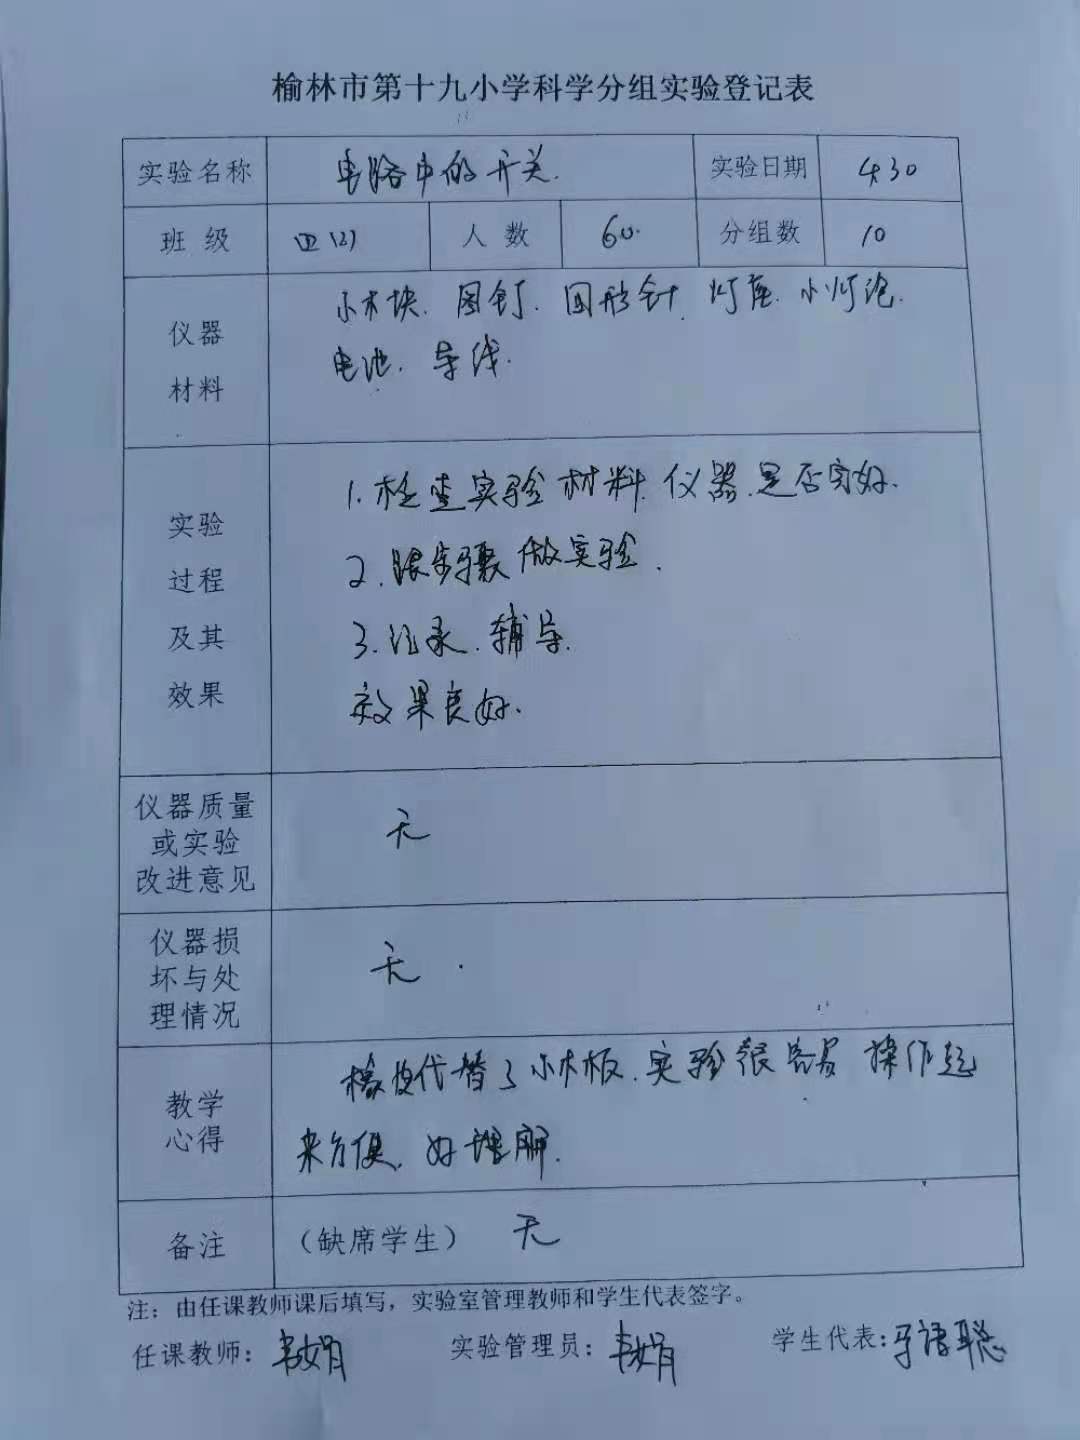 榆林市第十九小学科学分组实验登记表
实验名称 电路中的开关. 实验日期 4.30
班级 四(2) 人数 60. 分组数 10
仪器
材料
小木块. 图钉. 回形针. 灯座. 小灯泡.
电池. 导线.
实验
过程
及其
效果
1. 检查实验材料. 仪器. 是否完好.
2. 跟步骤做实验.
3. 记录. 辅导.
效果良好.
仪器质量
或实验
改进意见
无
仪器损
坏与处
理情况
无.
教学
心得
橡皮代替了小木板. 实验很容易 操作起
来方便. 好理解.
备注 (缺席学生) 无
注：由任课教师课后填写，实验室管理教师和学生代表签字。
任课教师： 实验管理员： 学生代表: